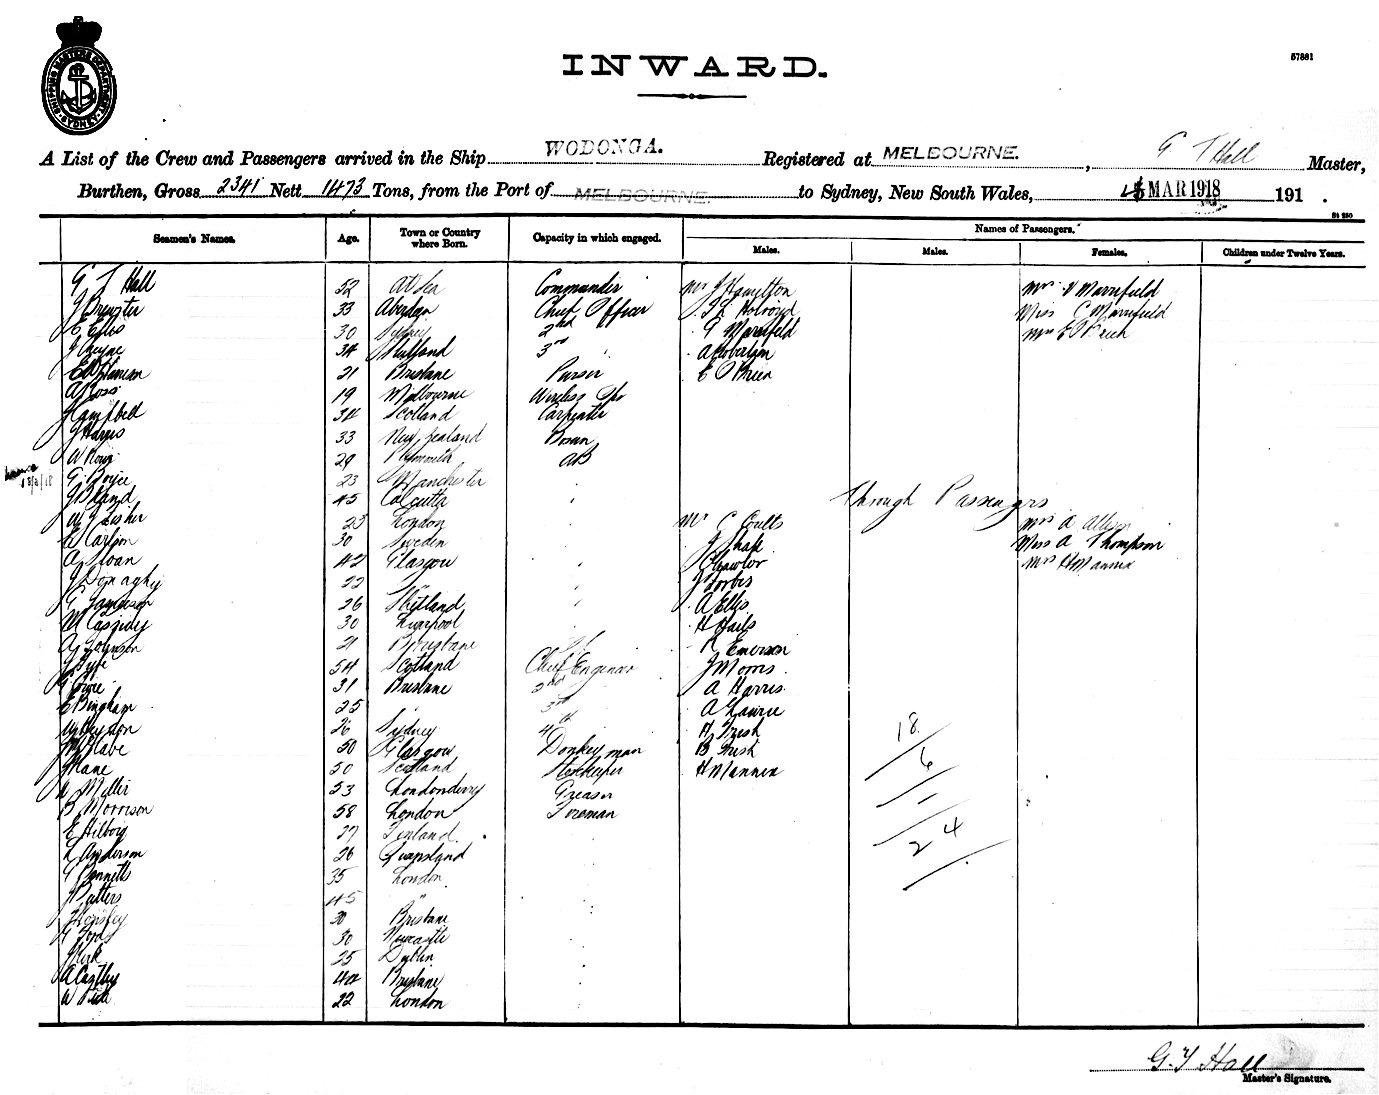 SHIPPING MASTERS DEPARTMENT SYDNEY
INWARD.
57881
A List of the Crew and Passengers arrived in the Ship WODONGA. Registered at MELBOURNE. , G T Hall Master,
Burthen, Gross 2341 Nett 1473 Tons, from the Port of MELBOURNE. to Sydney, New South Wales, MAR 1918 191 .
Seamen's Names. Age. Town or Country where Born. Capacity in which engaged. Names of Passengers.
Males. Males. Females. Children under Twelve Years.
G T Hall 52 At Sea Commander Mr J Hamilton Mrs Mansfield
J Brewster 33 Aberdeen Chief Officer Miss C Mansfield
30 Sydney 2nd G Mansfield Mrs
J Cheyne 34 Shetland 3rd
21 Brisbane Purser E O'Brien
A Ross 19 Melbourne Wireless Opr
J Campbell 34 Scotland Carpenter
J Harris 33 New Zealand Bosun
W 29 Plymouth AB
G Boyce 23 Manchester
J Bland 45 Calcutta Through Passengers
W J Fisher 23 London Mr C Coults Mrs A Allison
E Carlson 30 Sweden Miss A Thompson
A Sloan 42 Glasgow Mrs H Mannix
J Donaghy 22 " J Forbes
G Jamieson 26 Shetland A Ellis
M Cassidy 30 Liverpool H Hails
A Johnson 21 Brisbane R Emerson
J Fyfe 54 Scotland Chief Engineer J Morris
31 Brisbane 2nd A Harris
E Bingham 25 3rd A Laurie
26 Sydney 4th H Irish
50 Glasgow Donkeyman B Irish
J Lane 50 Scotland Storekeeper H Mannix
Miller 53 Londonderry Greaser
B Morrison 58 London Fireman
E Hilborg 27 Finland
L Anderson 26 Queensland
G Bennetts 35 London
J Butters 45 "
J Hensley 30 Brisbane
G Ford 30 Newcastle
J Kirk 25 Dublin
A Castley 44 Brisbane
W 22 London
18
6
1
24
G. T Hall
Master's Signature.